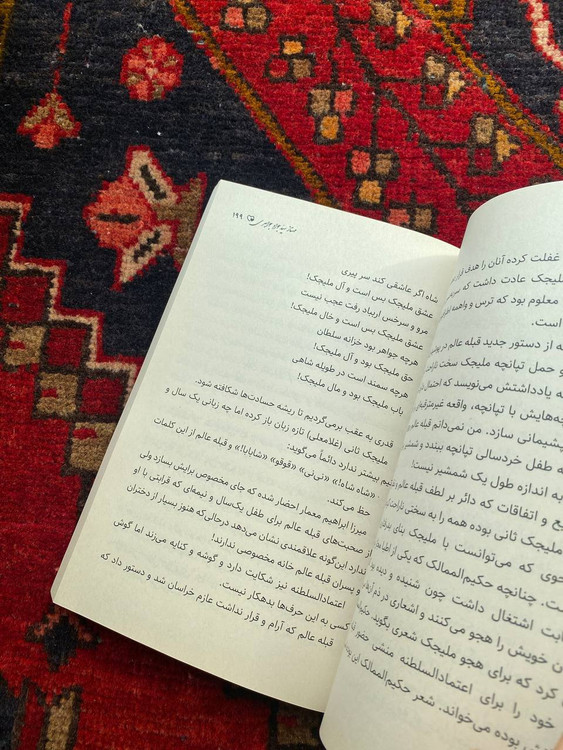 غفلت کرده آنان را هدف قرار
ملیجک عادت داشت که
معلوم بود که ترس و واهمه
است.
از دستور جدید قبله عالم در
و حمل تپانچه ملیجک سخت
یادداشتش می‌نویسد که احتمال
با تپانچه، واقعه
سازد. من نمی‌دانم قبله
طفل خردسالی تپانچه ببندد و
اندازه طول یک شمشیر نیست!
و اتفاقات که دائر بر لطف قبله عالم
ملیجک ثانی بوده همه را به سختی
که می‌توانست با ملیجک بنای
چنانچه حکیم‌الممالک که یکی از
اشتغال داشت چون شنیده و
خویش را هجو می‌کنند و اشعاری در
کرد که برای هجو ملیجک شعری بگوید.
خود را برای اعتمادالسلطنه منشی حضور
بوده می‌خواند. شعر حکیم‌الممالک این
۱۹۹
شاه اگر عاشقی کند سر پیری
عشق ملیجک بس است و آل ملیجک!
مرو و سرخس ارباد رفت عجب نیست
عشق ملیجک بس است و خال ملیجک!
هرچه جواهر بود خزانه سلطان
حق ملیجک بود و آل ملیجک!
هرچه سمند است در طویله شاهی
باب ملیجک بود و مال ملیجک!
قدری به عقب برمی‌گردیم تا ریشه حسادت‌ها شکافته شود.
ملیجک ثانی (غلامعلی) تازه زبان باز کرده اما چه زبانی یک سال و
نیم بیشتر ندارد دائماً می‌گوید:
- «شاه شاه!» «نی‌نی» «قوقو» «شابابا!» و قبله عالم از این کلمات
حظ می‌کند.
میرزا ابراهیم معمار احضار شده که جای مخصوص برایش بسازد ولی
از صحبت‌های قبله عالم برای طفل یک‌سال و نیمه‌ای که قرابتی با او
ندارد این‌گونه علاقمندی نشان می‌دهد درحالی‌که هنوز بسیار از دختران
و پسران قبله عالم خانه مخصوصی ندارند!
اعتمادالسلطنه نیز شکایت دارد و گوشه و کنایه می‌زند اما گوش
کسی به این حرف‌ها بدهکار نیست.
قبله عالم که آرام و قرار نداشت عازم خراسان شد و دستور داد که